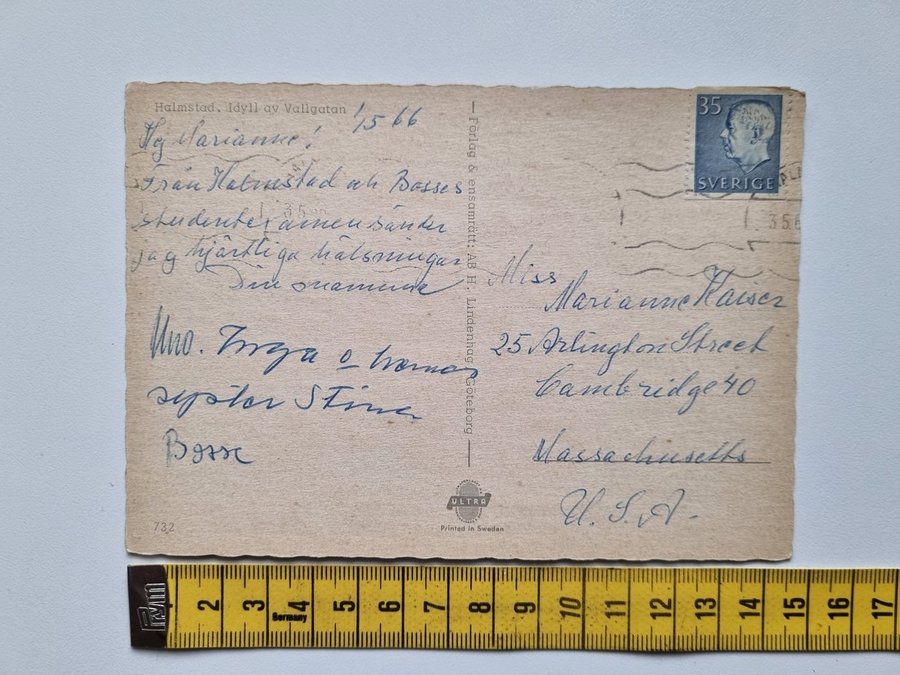 Halmstad. Idyll av Vallgatan
1/5 66
Hej Marianne!
Från Halmstad och Bosses
studentexamen sänder
jag hjärtliga hälsningar
Din mamma
Uno. Inga o hennes
syster Stina
Bosse
732
Förlag & ensamrätt: AB H. Lindenhag Göteborg
ULTRA
Printed in Sweden
35
SVERIGE
3 5 6
Miss
Marianne Kaiser
25 Arlington Street
Cambridge 40
Massachusetts
U. S. A.
2 3 4 5 6 7 8 9 10 11 12 13 14 15 16 17
Germany